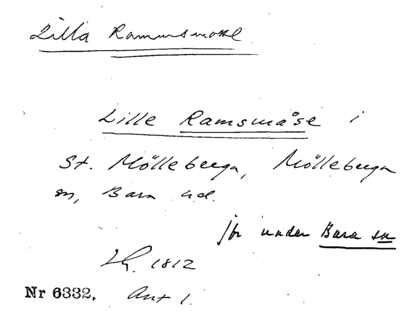 Lilla Ramsmossl
Lille Ramsmåse i
St. Mölleberga, Mölleberga
sn, Bara hd.
jfr under Bara sn
LR. 1812
Nr 6332. Avt 1.